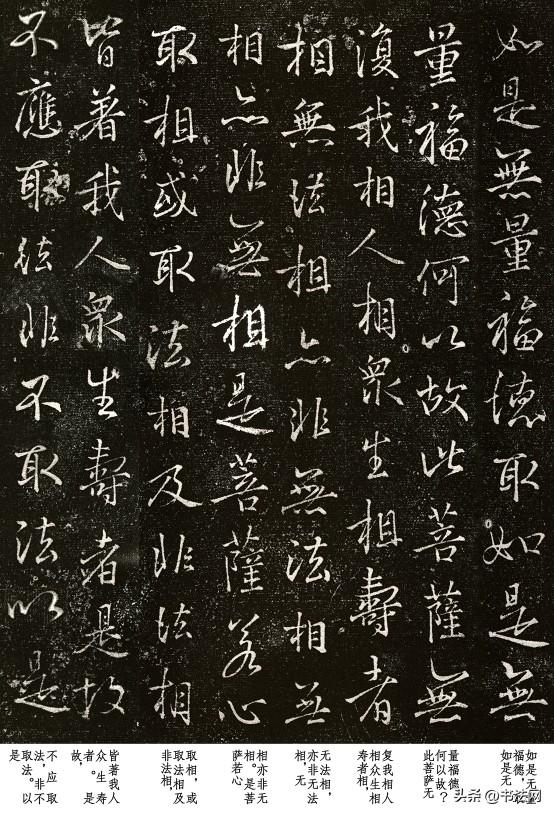 如是無量福德取如是無
量福德何以故此菩薩無
復我相人相眾生相壽者
相無法相亦非無法相無
相亦非無相是菩薩若心
取相或取法相及非法相
皆著我人眾生壽者是故
不應取法非不取法以是
如是无量
福德，取
如是无
量福德，
何以故？
此菩萨无
复我相人
相众生相
寿者相
无法相，
亦非无法
相，无
相亦非无
相。是菩
萨若心
取相，或
取法相及
非法相
皆著我人
众生寿
者。是
故，
不应取
法，非不
取法。以
是
头条@书法网